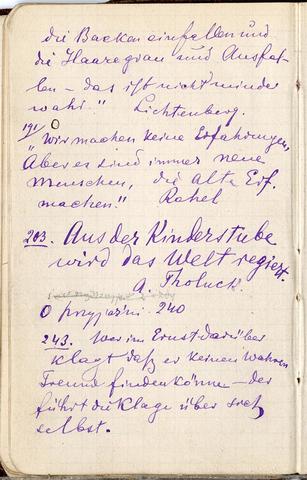 die Backen einfallen und
die Haare grau und Ausfal-
len – das ist nicht minder
wahr." Lichtenberg.
191/
"Wir machen keine Erfahrungen,
Aber es sind immer neue
Menschen, die alte Erf.
machen." Rahel
203. Aus der Kinderstube
wird das Welt regiert.
A. Tholuck.
O przyjaźni 240
243. Wer im Ernst darüber
klagt daß er keinen wahren
Freund finden könne – der
führt die Klage über sich
selbst.